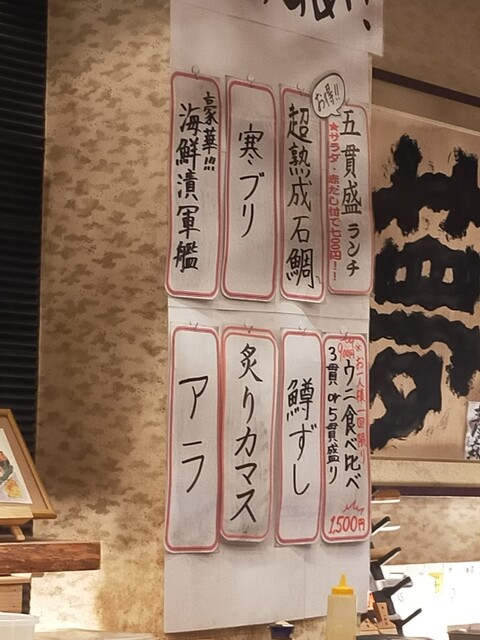 お得!!
五貫盛ランチ
★サラダ・赤だし付で七〇〇円!!
超熟成石鯛
寒ブリ
豪華!!!
海鮮漬軍艦
※お一人様一回限り
ウニ食べ比べ
3貫or5貫盛り
1,500円
鱒ずし
炙りカマス
アラ